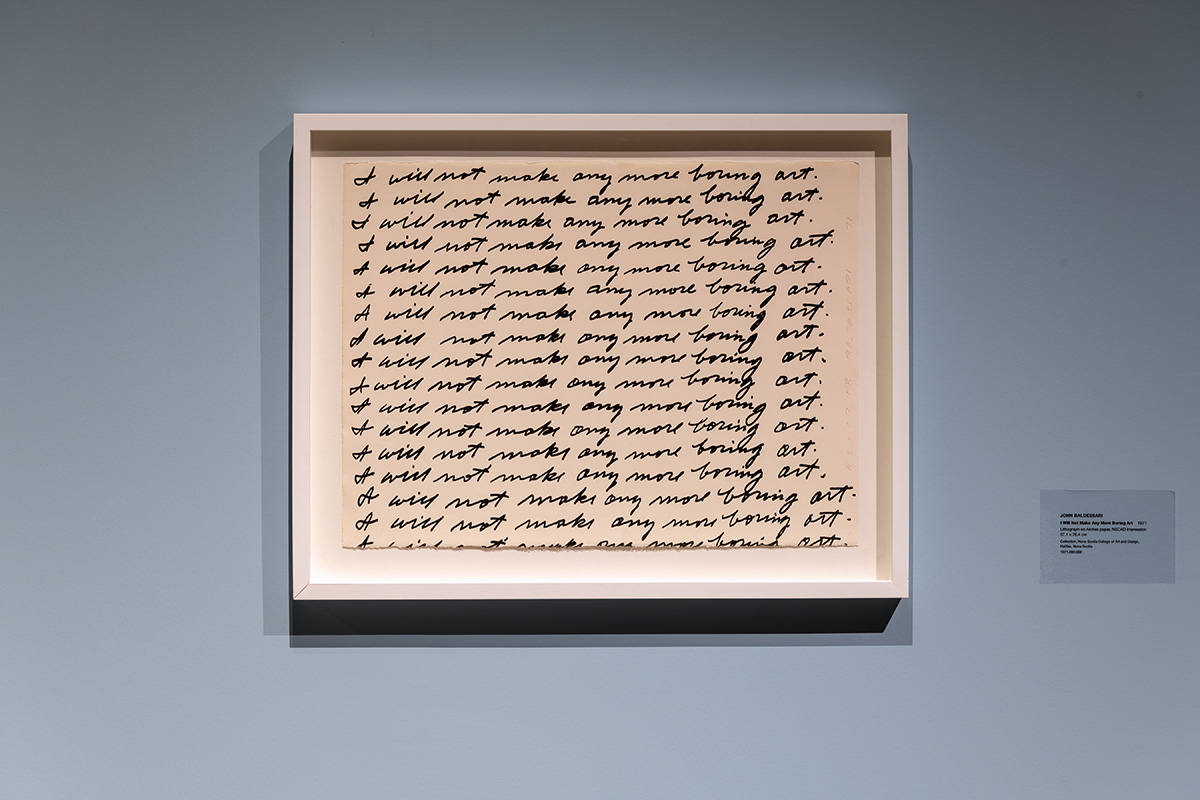 I will not make any more boring art.
I will not make any more boring art.
I will not make any more boring art.
I will not make any more boring art.
I will not make any more boring art.
I will not make any more boring art.
I will not make any more boring art.
I will not make any more boring art.
I will not make any more boring art.
I will not make any more boring art.
I will not make any more boring art.
I will not make any more boring art.
I will not make any more boring art.
I will not make any more boring art.
I will not make any more boring art.
I will not make any more boring art.
I will not make any more boring art.
JOHN BALDESSARI
I Will Not Make Any More Boring Art 1971
Lithograph on Arches paper, NSCAD Impression
57.1 x 76.4 cm
Collection, Nova Scotia College of Art and Design,
Halifax, Nova Scotia